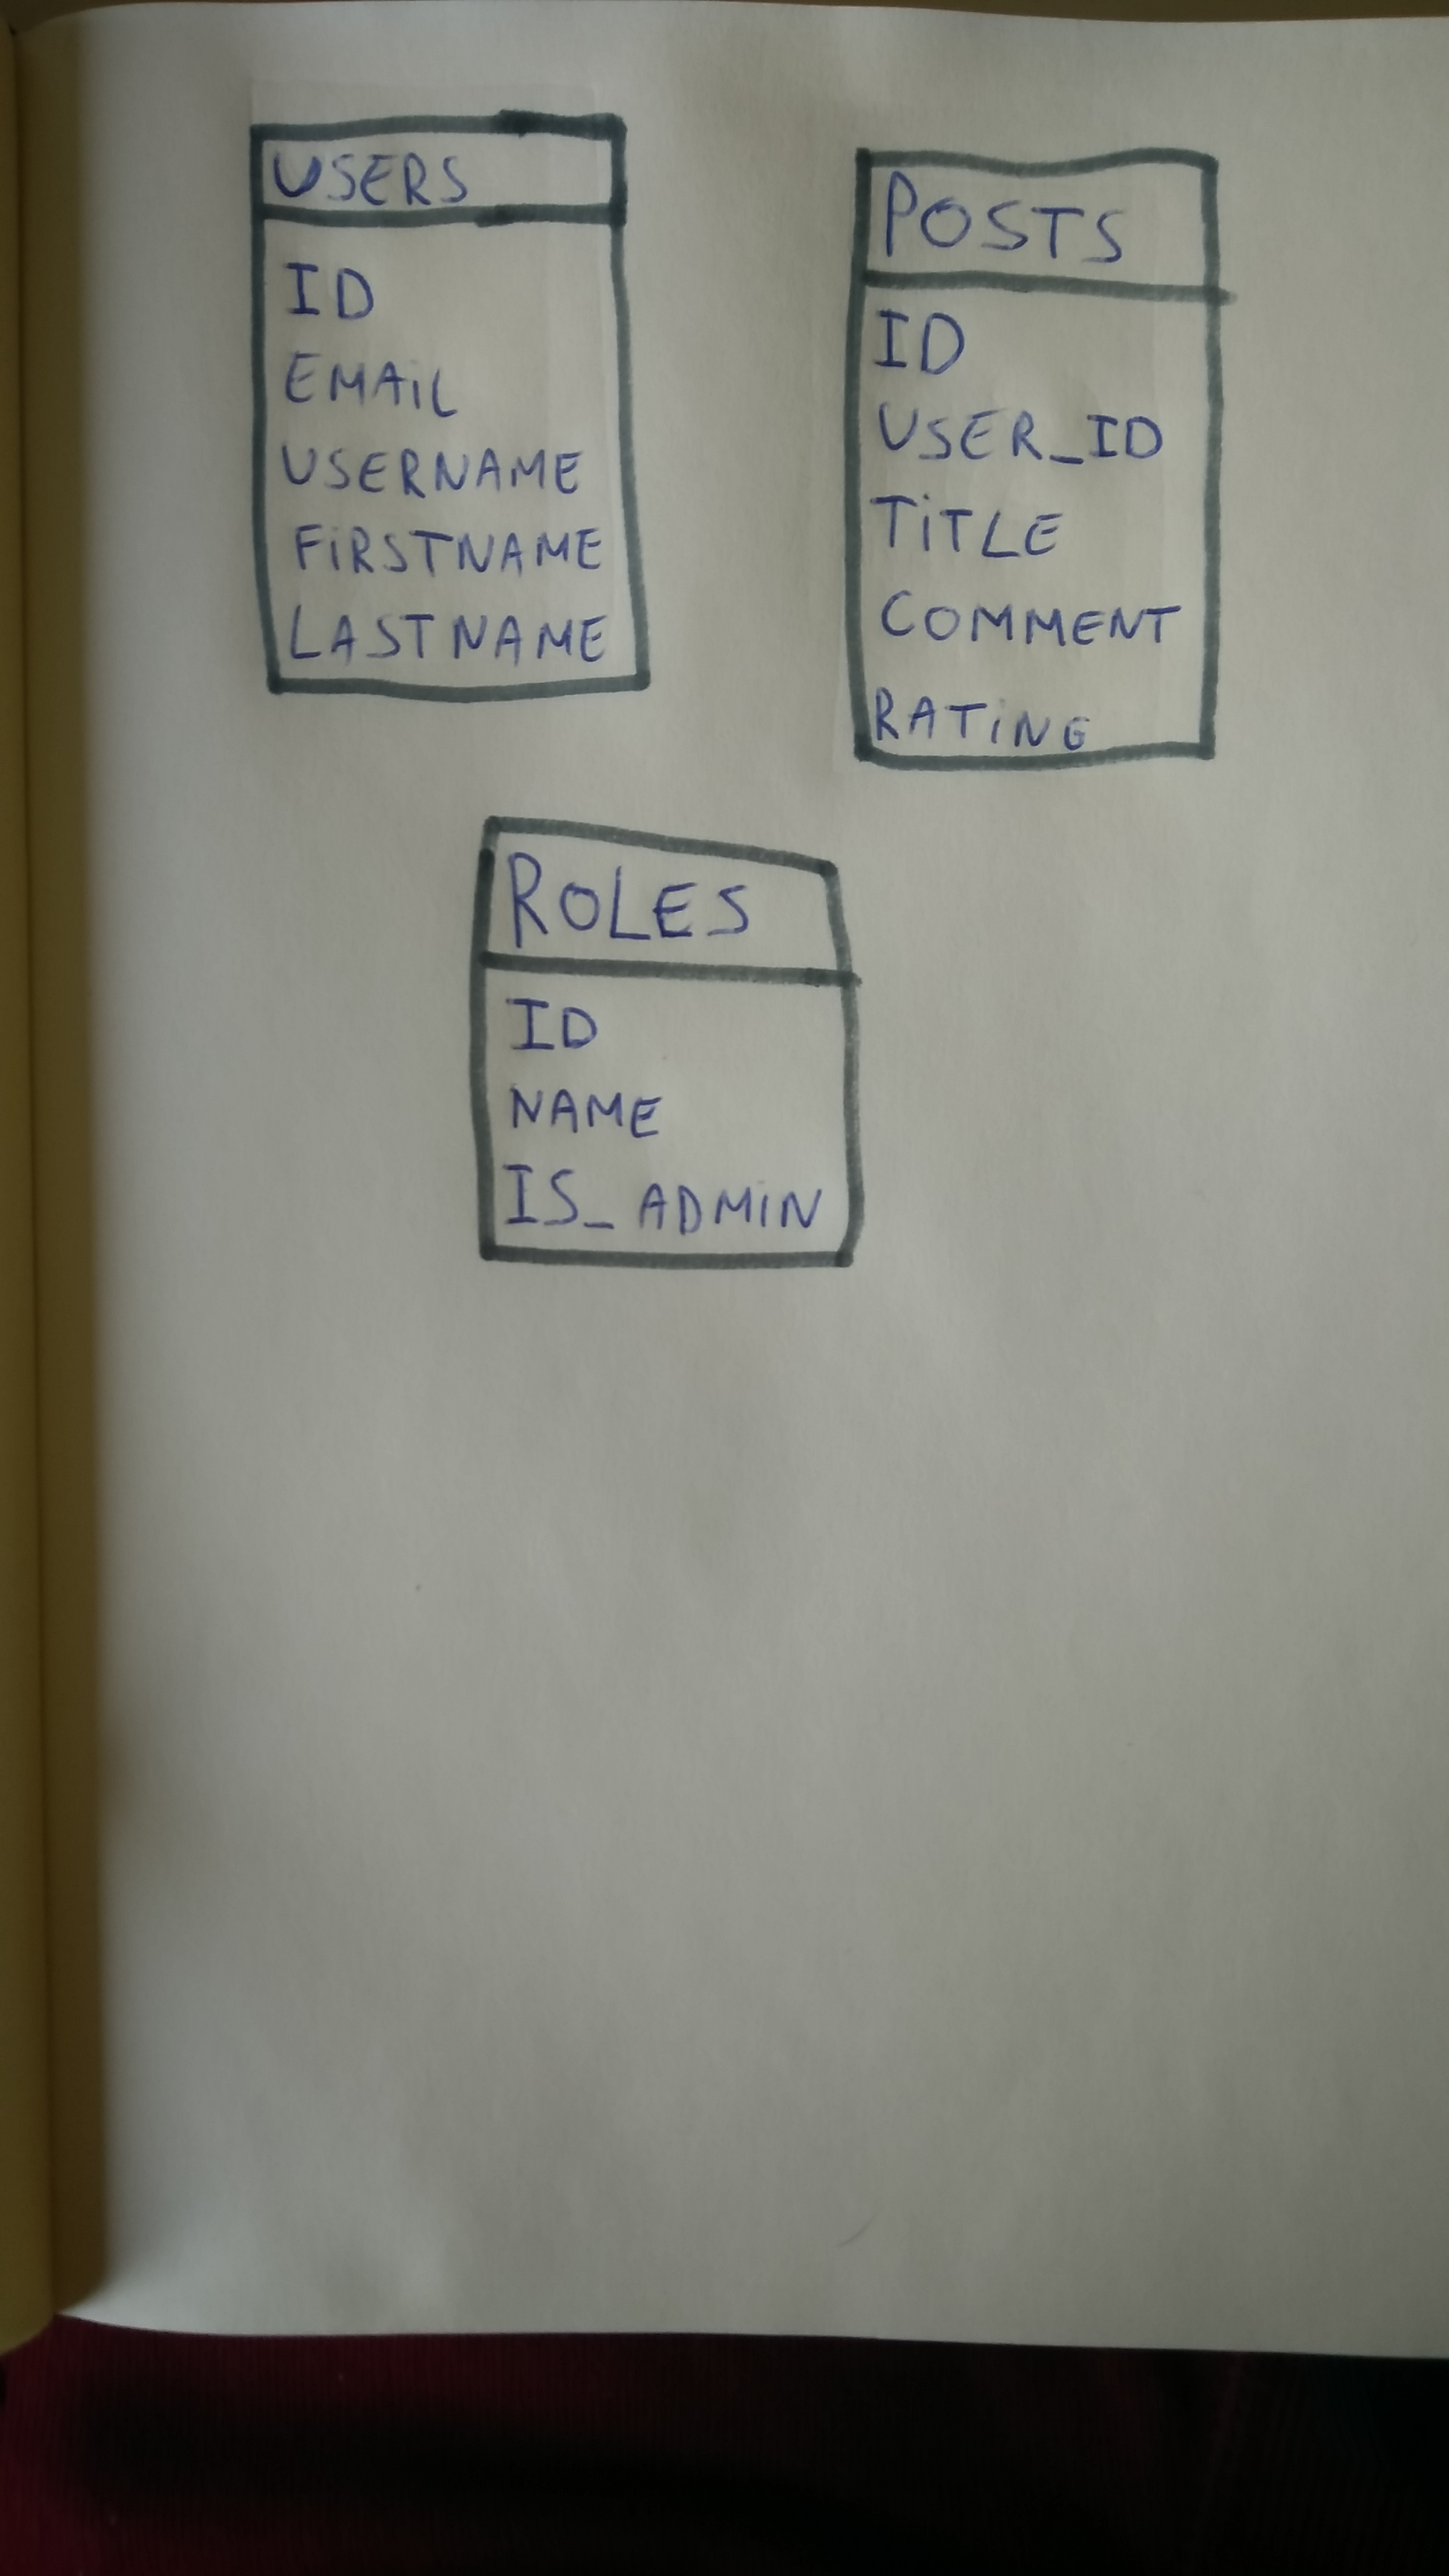 USERS
ID
EMAiL
USERNAME
FiRSTNAME
LASTNAME
POSTS
ID
USER_ID
TiTLE
COMMENT
RATiNG
ROLES
ID
NAME
IS_ADMiN